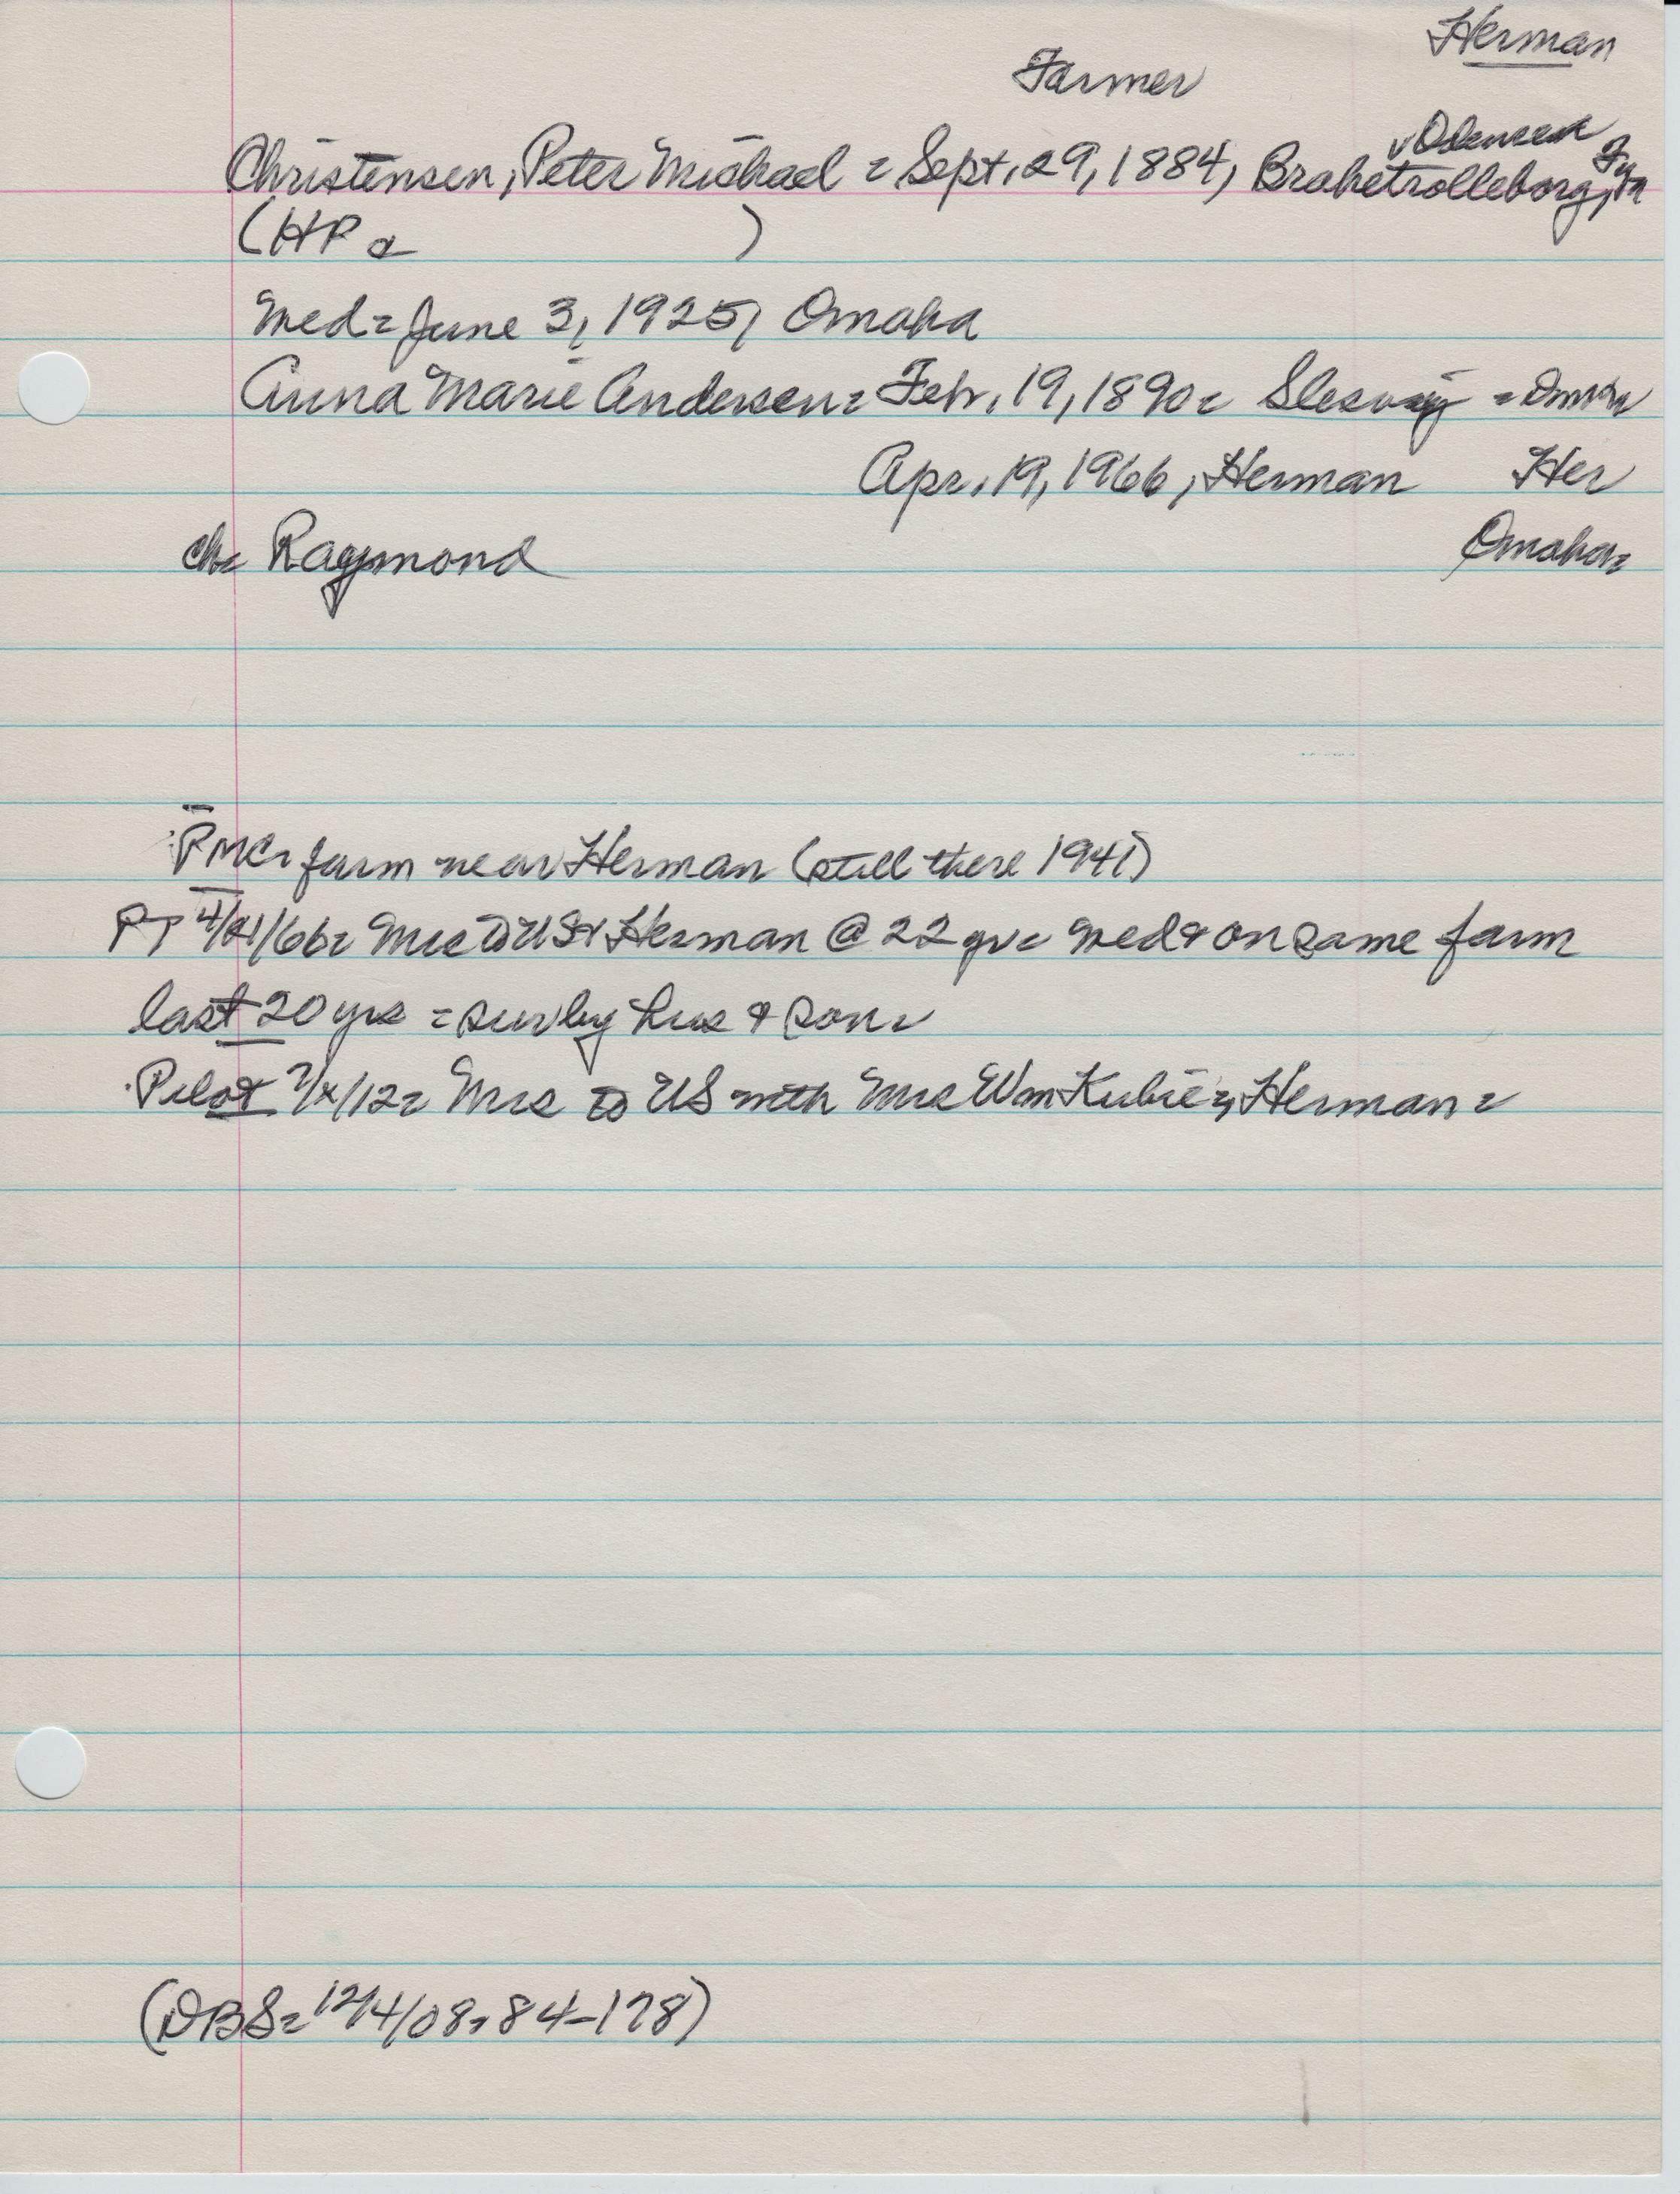 Herman
Farmer
v Odense
Christensen, Peter Michael = Sept. 29, 1884, Brahetrolleborg, Fyn
(HP = )
Med = June 3, 1925, Omaha
Anna Marie Andersen = Febr. 19, 1890 = Slesvig =
Apr. 19, 1966, Herman Her
ch = Raymond Omaha =
PMC = farm near Herman (still there 1941)
PT 4/21/66 = Mrs to US & Herman @ 22 yr = med & on same farm
last 20 yrs = surv by hus & son =
Pilot Mrs to US with Mrs Wm Kubie, Herman =
(DBS = 12/4/08, 84-178)